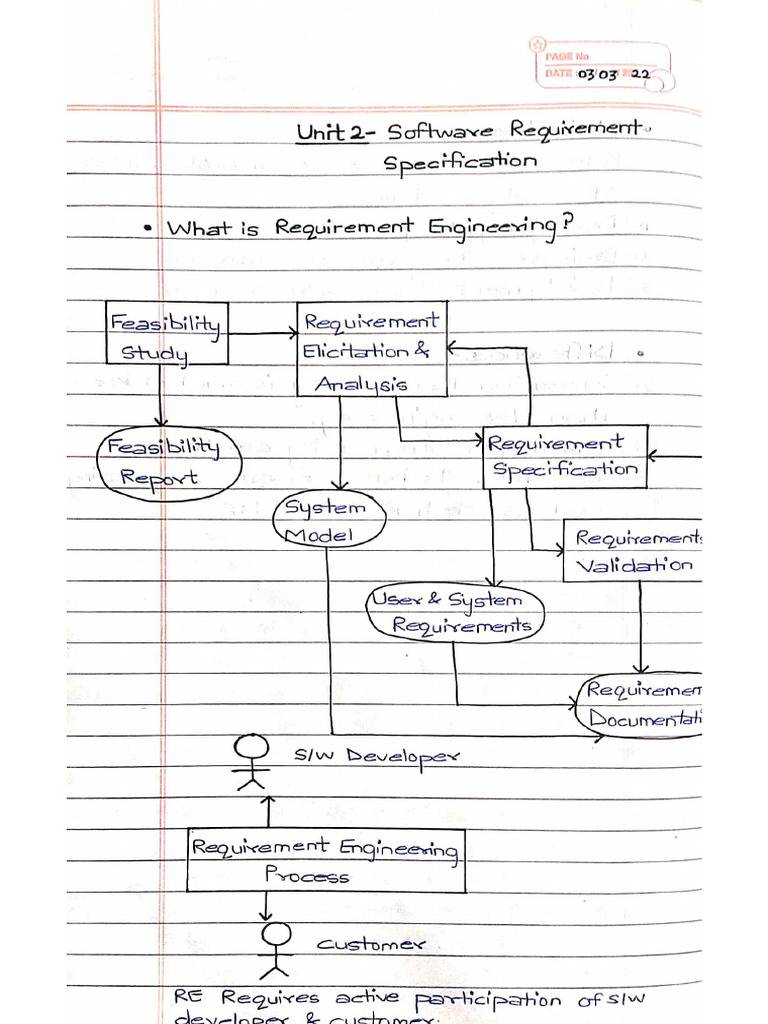 PAGE No
DATE 03 03 22
Unit 2 - Software Requirement
Specification
• What is Requirement Engineering?
Feasibility
Study
Requirement
Elicitation &
Analysis
Feasibility
Report
Requirement
Specification
System
Model
Requirements
Validation
User & System
Requirements
Requiremen
Documentati
S/W Developer
Requirement Engineering
Process
Customer
RE Requires active participation of S/W
developer & customer.